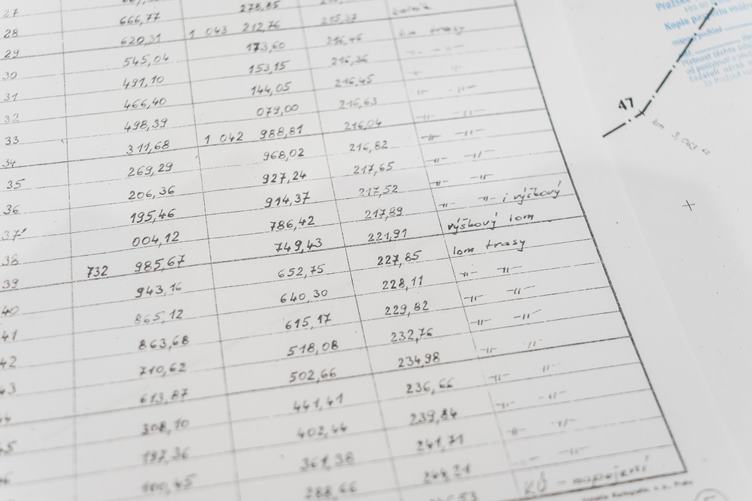 27
28 666,77 278,85
29 620,31 1 043 212,76 215,37
30 545,04 173,60 216,46 lom trasy
31 491,10 153,15 216,36 -"- -"-
32 466,40 144,05 216,45 -"- -"-
33 498,39 079,00 216,63 -"- -"-
34 311,68 1 042 988,81 216,04 -"- -"-
35 269,29 968,02 216,82 -"- -"-
36 206,36 927,24 217,65 -"- -"-
37 195,46 914,37 217,52 -"- -"-
38 004,12 786,42 217,89 -"- -"- i výškový
39 732 985,67 749,43 221,91 výškový lom
40 943,16 652,75 227,85 lom trasy
41 865,12 640,30 228,11 -"- -"-
42 863,68 615,17 229,82 -"- -"-
43 710,62 518,08 232,76 -"- -"-
44 613,87 502,66 234,98 -"- -"-
45 308,10 441,41 236,66 -"- -"-
46 197,36 402,44 239,84 -"- -"-
100,45 361,38 241,71 -"- -"-
288,66 248,21 -"- -"-
KÚ - napojení
47
km 3,063